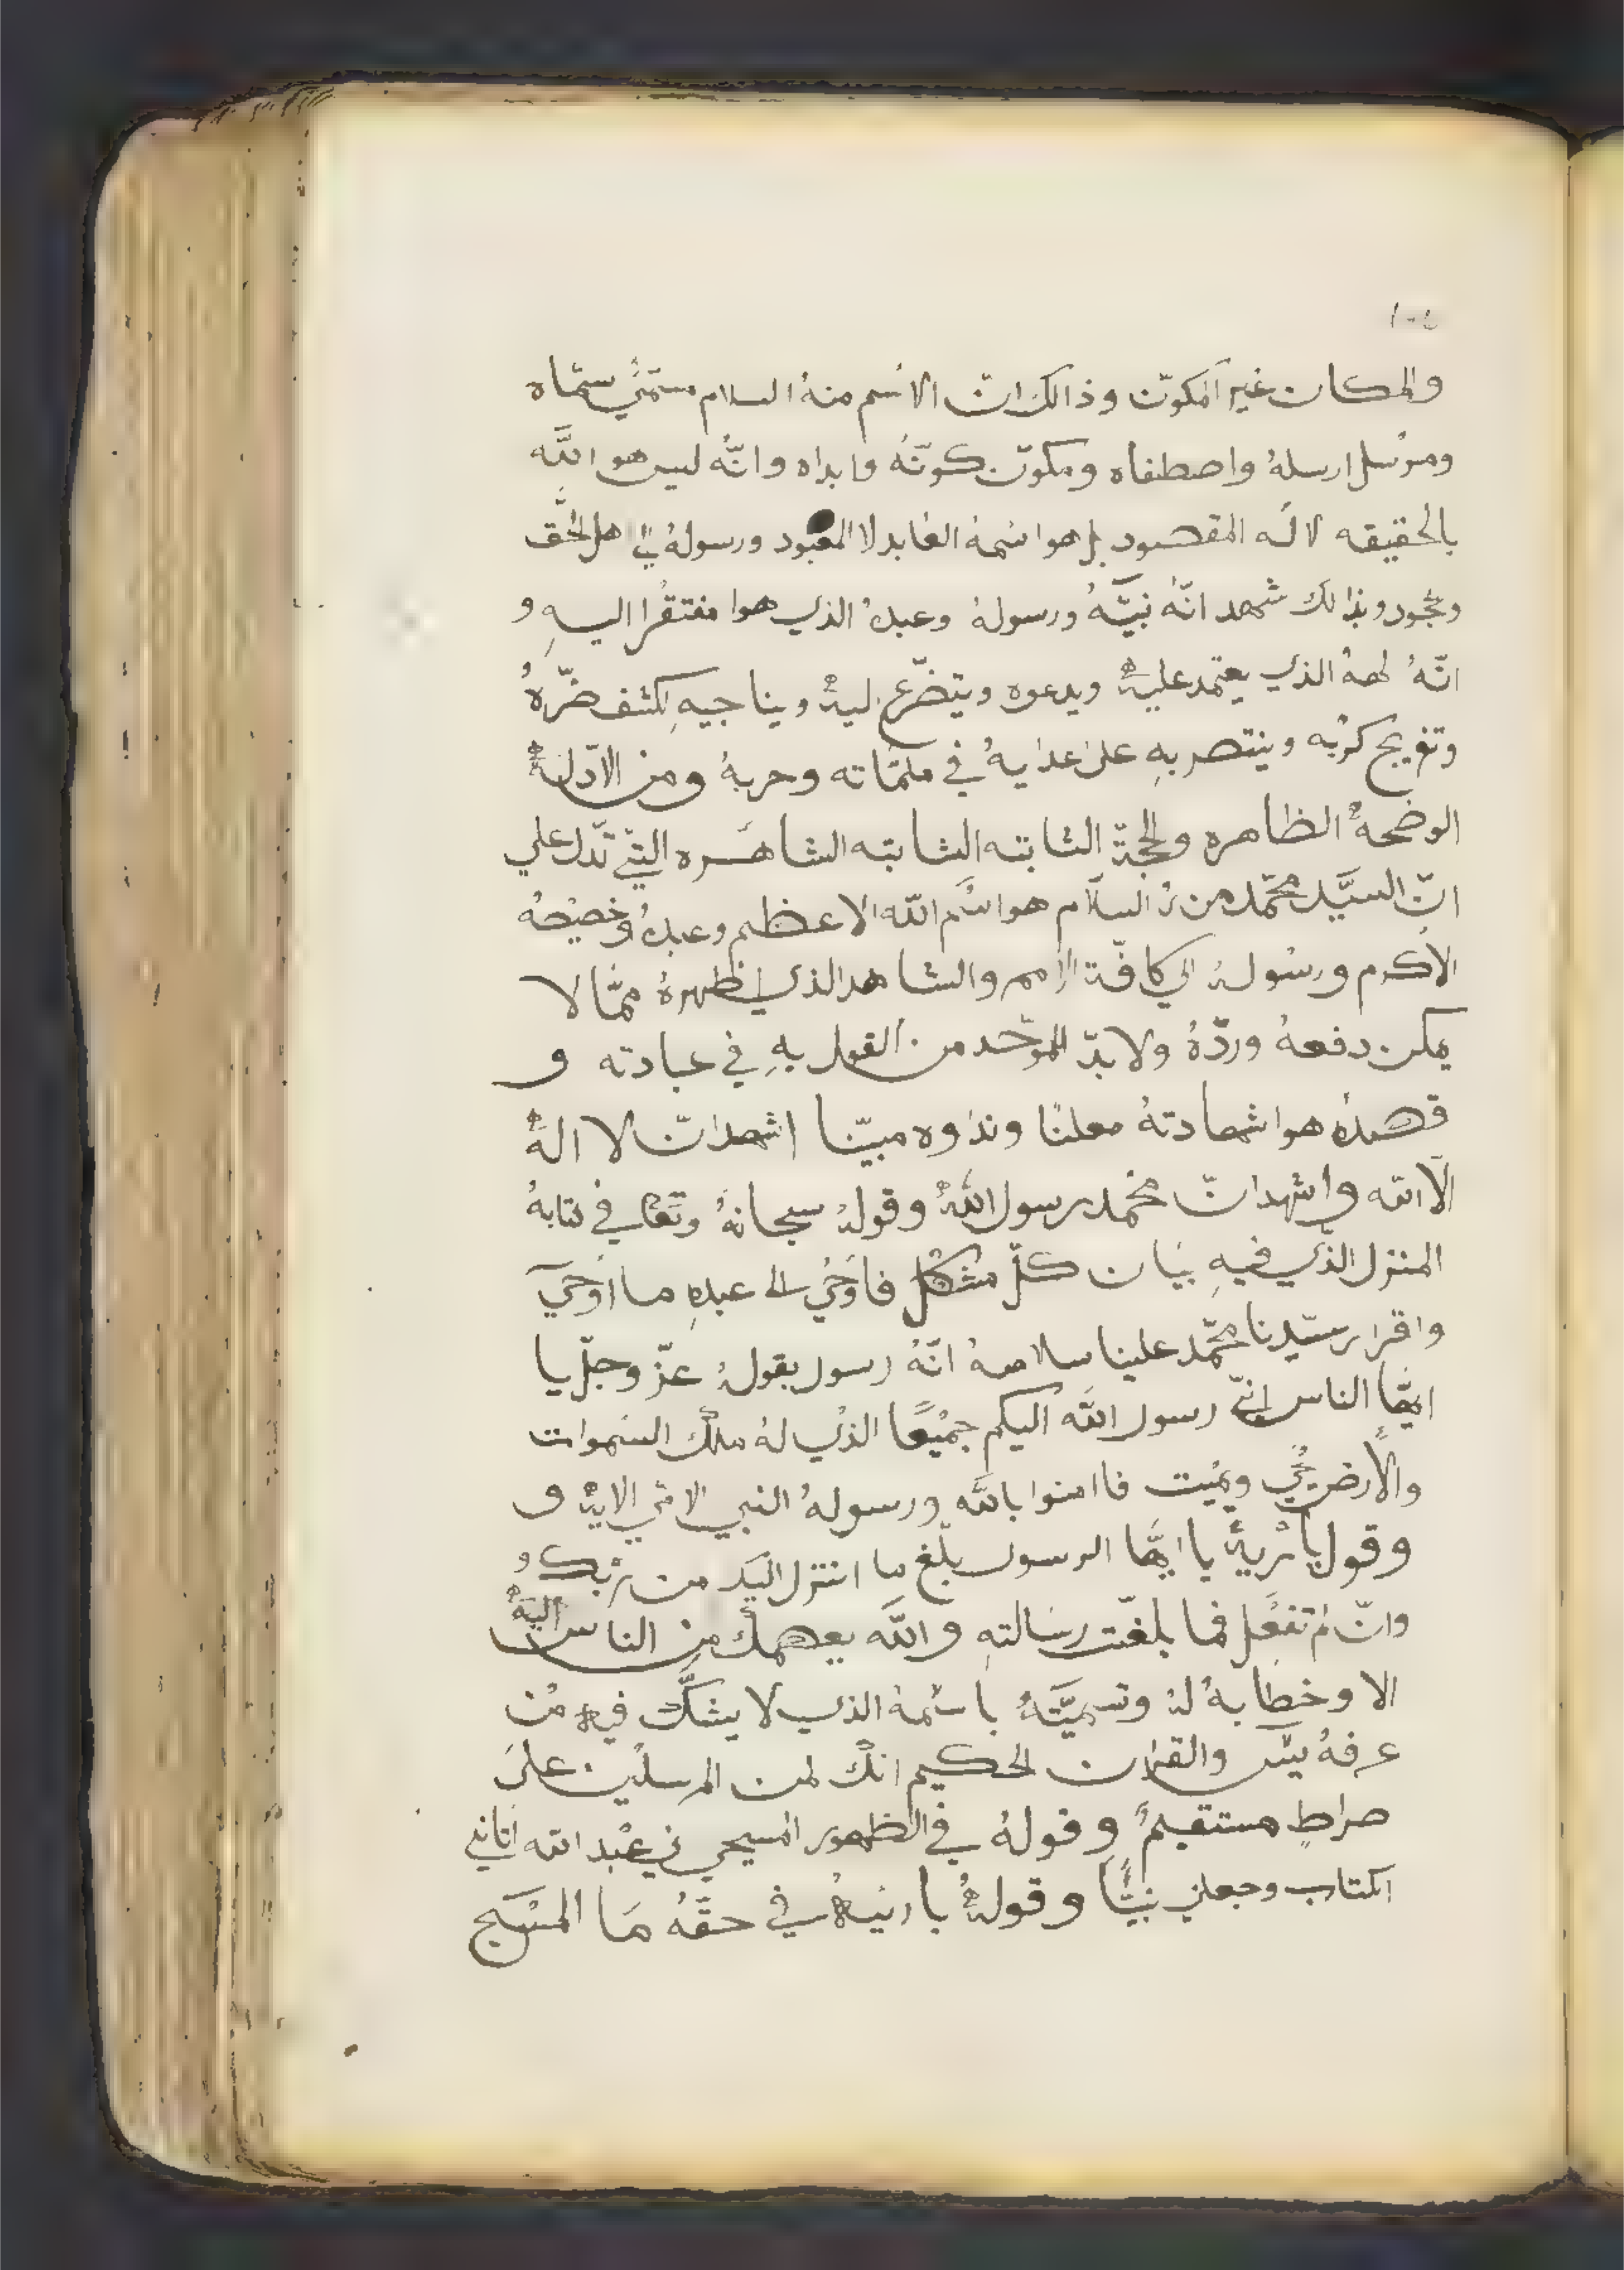 والمكان غير المكوّن وذالك انّ الاسم منهُ السلام مسمّيً سمّاه
ومرسل ارسلهُ واصطفاه ومكوّن كوّنهُ وابداه وانّهُ ليس هو اللَّه
بالحقيقه لالَه المقصود بل هوا اسمهُ العابد لا المعبود ورسولهُ هل الحَّق
وبذالك شهد انّهُ نبيَّهُ ورسولهُ وعبدهُ الذي هوا مفتقرا اليهِ و
انّهُ الذي يعتمد عليهُ ويدعوه ويتضرّع ليهُ ويناجيهِ لكشف ضّرهُ
وتفريج كربه وينتصر بهِ على عدايهُ في ملمّاته وحربهُ ومن الادّلهُ
الوضحهُ الظاهره والحجّة الثابته الشابته الشاهره التّي تّدل علي
انّ السيَّد محمّد من السلام هوا اسَم اللّه الاعظم وعبدهُ وخصيصهُ
الاكرم ورسولهُ الي كافّة الامم والشاهد الذي اظهرهُ ممّا لا
يمكن دفعهُ وردّهُ ولا بدّ للموحّد من القول بهِ في عبادته و
قصدهُ هوا شهادتهُ معلنًا وندٰاوه مبيّنا اشهد انّ لا الهُ
الّا اللّه واشهد انّ محمد رسول اللّهُ وقولهُ سبحانهُ وتعَا في تابهُ
المنزل الذّي فيهِ بيَان كلّ مشكل فاوَحُي الى عبدهِ ما اوَحيَ
واقرار سيّدنا محمّد علينا سلامهُ انّهُ رسول بقولهُ عزّ وجلّ يا
ايّهُا الناس انّي رسول اللَّه اليكم جميْعًا الذّي لهُ ملك السَموات
والأرض يُحي ويميْت فاامنوا باللَّه ورسولهُ النبي الامّي الايهُ و
وقول ياايّهُا الرسول بلّغ ما انتزل اليَك من ربّك و
وانّ لم تفعٌل فما بلغّت رسالتهِ واللَّه يعصمك من الناس أليهُ
الا وخطابهُ لهُ وتسميَّتهُ باسْمهُ الذي لا يشكّ فيهُ مُن
عرفهُ يسّ والقرٰان الحكيم انكّ لمن المرسليْن علىَ
صراطٍ مستقيمٌ وقولهُ في الظهور المسيحي عبْد اللّه اتاني
الكتاب وجعلني نبيًّا وقولهُ في حقّهُ مَا المسَيح